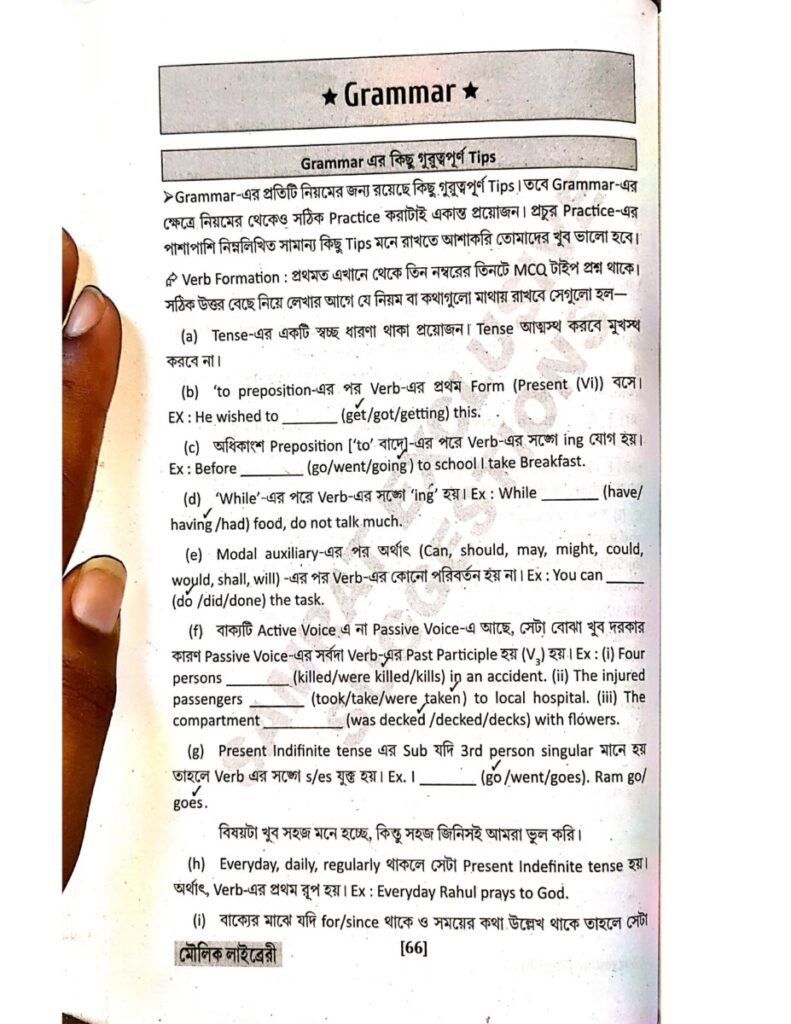 ★ Grammar ★
Grammar এর কিছু গুরুত্বপূর্ণ Tips
➢Grammar-এর প্রতিটি নিয়মের জন্য রয়েছে কিছু গুরুত্বপূর্ণ Tips। তবে Grammar-এর
ক্ষেত্রে নিয়মের থেকেও সঠিক Practice করাটাই একান্ত প্রয়োজন। প্রচুর Practice-এর
পাশাপাশি নিম্নলিখিত সামান্য কিছু Tips মনে রাখতে আশাকরি তোমাদের খুব ভালো হবে।
Verb Formation : প্রথমত এখানে থেকে তিন নম্বরের তিনটে MCQ টাইপ প্রশ্ন থাকে।
সঠিক উত্তর বেছে নিয়ে লেখার আগে যে নিয়ম বা কথাগুলো মাথায় রাখবে সেগুলো হল—
(a) Tense-এর একটি স্বচ্ছ ধারণা থাকা প্রয়োজন। Tense আত্মস্থ করবে মুখস্থ
করবে না।
(b) ‘to preposition-এর পর Verb-এর প্রথম Form (Present (Vi)) বসে।
EX : He wished to ______ (get/got/getting) this.
(c) অধিকাংশ Preposition [‘to’ বাদে]-এর পরে Verb-এর সঙ্গে ing যোগ হয়।
Ex : Before ______ (go/went/going) to school I take Breakfast.
(d) ‘While’-এর পরে Verb-এর সঙ্গে ‘ing’ হয়। Ex : While ______ (have/
having /had) food, do not talk much.
(e) Modal auxiliary-এর পর অর্থাৎ (Can, should, may, might, could,
would, shall, will) -এর পর Verb-এর কোনো পরিবর্তন হয় না। Ex : You can ____
(do /did/done) the task.
(f) বাক্যটি Active Voice এ না Passive Voice-এ আছে, সেটা বোঝা খুব দরকার
কারণ Passive Voice-এর সর্বদা Verb-এর Past Participle হয় (V₃) হয়। Ex : (i) Four
persons ______ (killed/were killed/kills) in an accident. (ii) The injured
passengers ______ (took/take/were taken) to local hospital. (iii) The
compartment ________ (was decked /decked/decks) with flowers.
(g) Present Indifinite tense এর Sub যদি 3rd person singular মানে হয়
তাহলে Verb এর সঙ্গে s/es যুক্ত হয়। Ex. I ______ (go /went/goes). Ram go/
goes.
বিষয়টা খুব সহজ মনে হচ্ছে, কিন্তু সহজ জিনিসই আমরা ভুল করি।
(h) Everyday, daily, regularly থাকলে সেটা Present Indefinite tense হয়।
অর্থাৎ, Verb-এর প্রথম রূপ হয়। Ex : Everyday Rahul prays to God.
(i) বাক্যের মাঝে যদি for/since থাকে ও সময়ের কথা উল্লেখ থাকে তাহলে সেটা
মৌলিক লাইব্রেরী
[66]
SAMPAT EXCLUSIVE
SUGGESTIONS